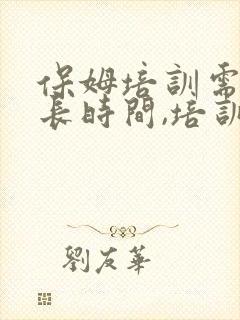 保姆培訓需
長時間,培訓
劉友華